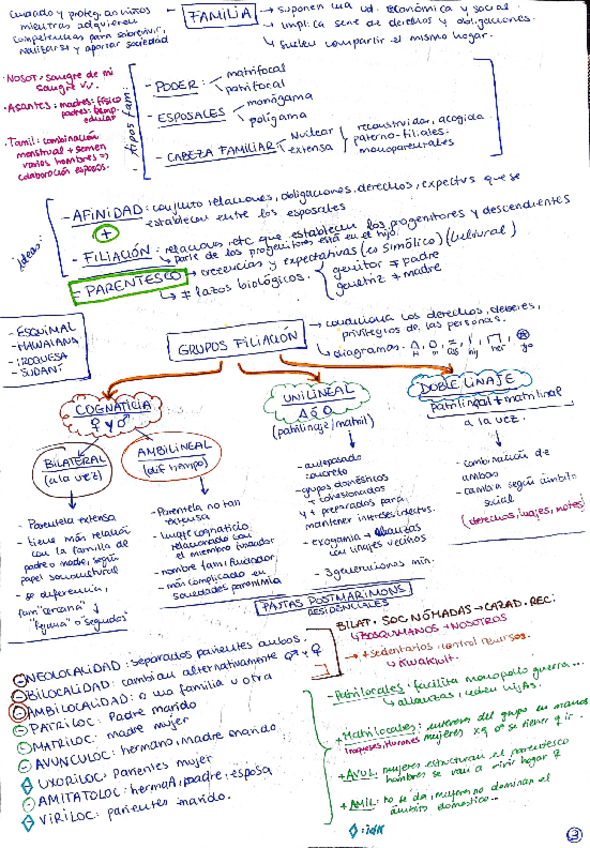 cuidado y proteg. a niños
mientras adquieren
competencias para sobrevivir,
realizarse y aportar sociedad
FAMILIA
suponen una ud. económica y social.
implica serie de derechos y obligaciones.
suelen compartir el mismo hogar.
-NOSOT: sangre de mi
sangre
-ASANTES: madres: físico
padres: temp.
-Tamil: combinación
menstrual + semen
varios hombres ⇒
colaboración esposos.
tipos fam:
- PODER:
matrifocal
patrifocal
- ESPOSALES
monógama
polígama
- CABEZA FAMILIAR
Nuclear
extensa
reconstruida, acogida
paterno-filiales.
monoparentales
ideas:
- AFINIDAD: conjunto relaciones, obligaciones, derechos, expectvs que se
establecen entre los esposales
+
- FILIACIÓN: relaciones, etc que establecen los progenitores y descendientes
parte de los progenitores está en el hijo.
= PARENTESCO
creencias y expectativas (es simólico) (cultural)
≠ lazos biológicos.
genitor ≠ padre
genetriz ≠ madre
- ESQUIMAL
- HAWAIANA
- IROQUESA
- SUDANÍ
GRUPOS FILIACIÓN
condiciona los derechos, deberes,
privilegios de las personas.
diagramas.
COGNATICIA
♀ y ♂
UNILINEAL
Δ ó O
(patrilinaje/matril)
DOBLE LINAJE
Patrilineal + matrilineal
a la vez.
BILATERAL
(a la vez)
AMBILINEAL
(dif tiempo)
- Parentela extensa
- tiene más relación
con la familia de
padre o madre, según
papel sociocultural
- se diferencia,
fam "cercana" y
"lejana" o segundos
- Parentela no tan
extensa
- linaje cognaticio
relacionado con
el miembro fundador
- nombre fam: fundador,
- más complicado en
sociedades
- antepasado
concreto
- grupos domésticos
+ cohesionados
y + preparados para
mantener intereses colectvs.
- exogamia → alianzas
con linajes vecinos
- 3 generaciones mín.
- combinación de
ambos
- cambia según ámbito
social
(derechos, viajes, notes)
PAUTAS POSTMARIMONS
RESIDENCIALES
BILAT. SOC NÓMADAS → CAZAD. REC:
BOSQUMANOS + NOSOTROS
+ sedentarios, control recursos.
Kwakiult.
- NEOLOCALIDAD: separados parientes ambos.
- BILOCALIDAD: cambian alternativamente ♂ y ♀
- AMBILOCALIDAD: o una familia u otra
- PATRILOC: Padre marido
- MATRILOC: madre mujer
- AVUNCULOC: hermano, madre marido
UXORILOC: Parientes mujer
- AMITATOLOC: hermaA, padre, esposa
VIRILOC: parientes marido.
- Patrilocales: facilita monopolio guerra...
alianzas, ceden hijas.
+ Matrilocales: intereses del grupo en manos
Iroqueses, Hurones mujeres xq ♂ se tienen q ir.
+ AVUL: mujeres estructuran el parentesco
hombres se van a vivir hogar ♀
+ AMIL: no se da, mujeres no dominan el
ámbito doméstico...
: idk
3